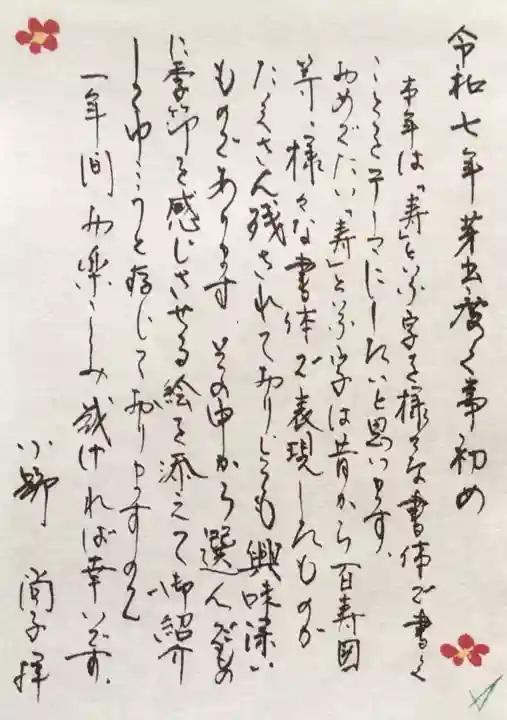 令和七年芽出度く事初め
本年は「寿」といふ字を様々な書体で書く
ことをテーマにしたいと思います。
おめでたい「寿」といふ字は昔から百寿図
等、様々な書体で表現したものが
たくさん残されておりとても興味深い
ものであります。その中から選んだもの
に季節を感じさせる絵を添えて御紹介
しようと存じておりますので
一年間お楽しみ戴ければ幸いです。
小野 尚子 拝